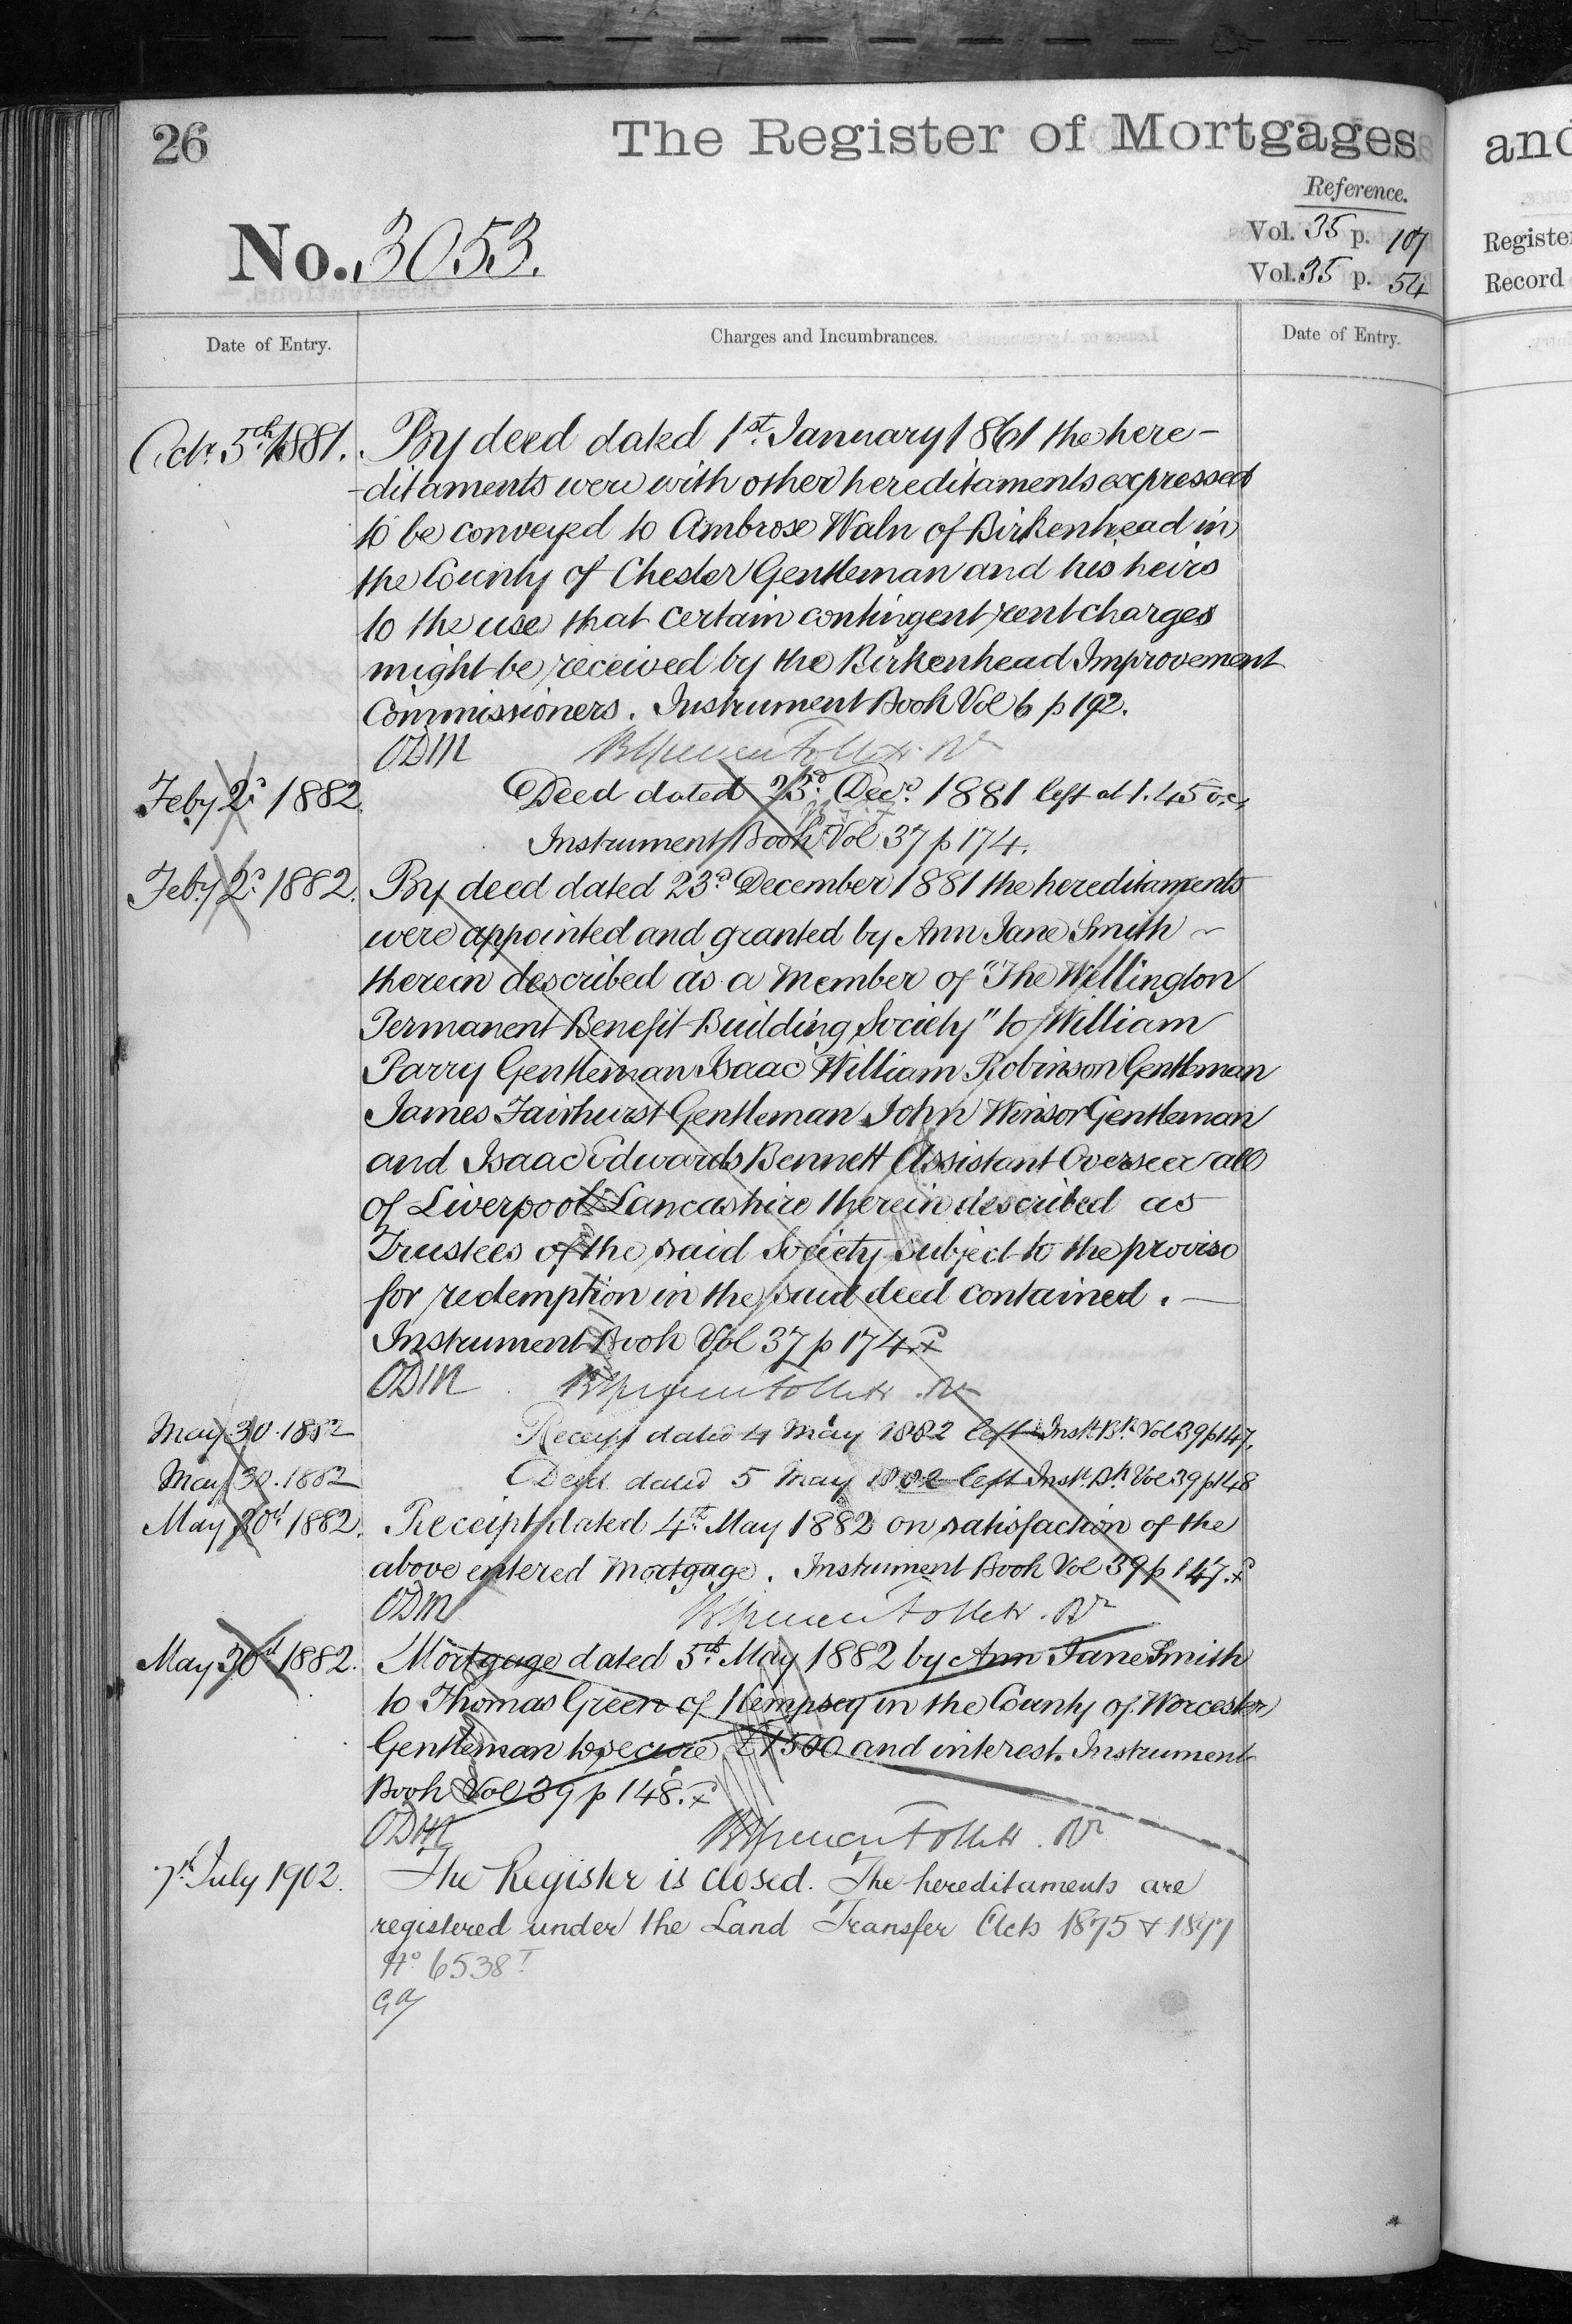 26
The Register of Mortgages
and
Reference.
No. 3053.
Vol. 35 p. 107
Vol. 35 p. 54
Register
Record
Date of Entry.
Charges and Incumbrances.
Date of Entry.
Octr. 5th 1881. By deed dated 1st. January 1861 the here-
-ditaments were with other hereditaments expressed
to be conveyed to Ambrose Waln of Birkenhead in
the County of Chester Gentleman and his heirs
to the use that certain contingent rent charges
might be received by the Birkenhead Improvement
Commissioners. Instrument Book Vol 6 p 192.
ODM
Feby 2d. 1882. Deed dated 23d. Decr. 1881 left at 1.45
Instrument Book Vol 37 p 174.
Feby 2d. 1882. By deed dated 23d. December 1881 the hereditaments
were appointed and granted by Ann Jane Smith
therein described as a Member of "The Wellington
Permanent Benefit Building Society" to William
Parry Gentleman Isaac William Robinson Gentleman
James Fairhurst Gentleman John Winsor Gentleman
and Isaac Edwards Bennett Assistant Overseer all
of Liverpool Lancashire therein described as
Trustees of the said Society subject to the proviso
for redemption in the said deed contained. —
Instrument Book Vol 37 p 174.
ODM
May 30. 1882 Receipt dated 4 May 1882 left Inst. Bk. Vol 39 p 147.
May 30. 1882 Deed dated 5 May 1882 left Inst. Bk. Vol 39 p 148
May 30th. 1882. Receipt dated 4th. May 1882 on satisfaction of the
above entered Mortgage. Instrument Book Vol 39 p 147.
ODM
May 30th 1882. Mortgage dated 5th. May 1882 by Ann Jane Smith
to Thomas Green of Kempsey in the County of Worcester
Gentleman to secure £1500 and interest. Instrument
Book Vol 39 p 148.
ODM
7th July 1902. The Register is closed. The hereditaments are
registered under the Land Transfer Acts 1875 & 1897
No. 6538